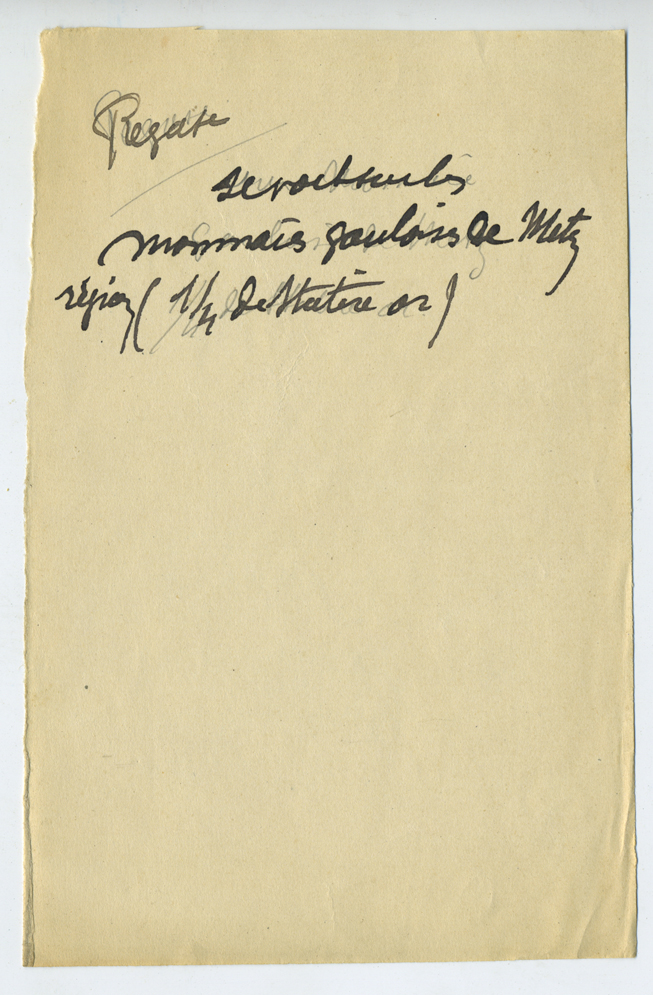 Pegase
se voit sur les
monnaies gauloises de Metz
région ( 1/4 de statère or )